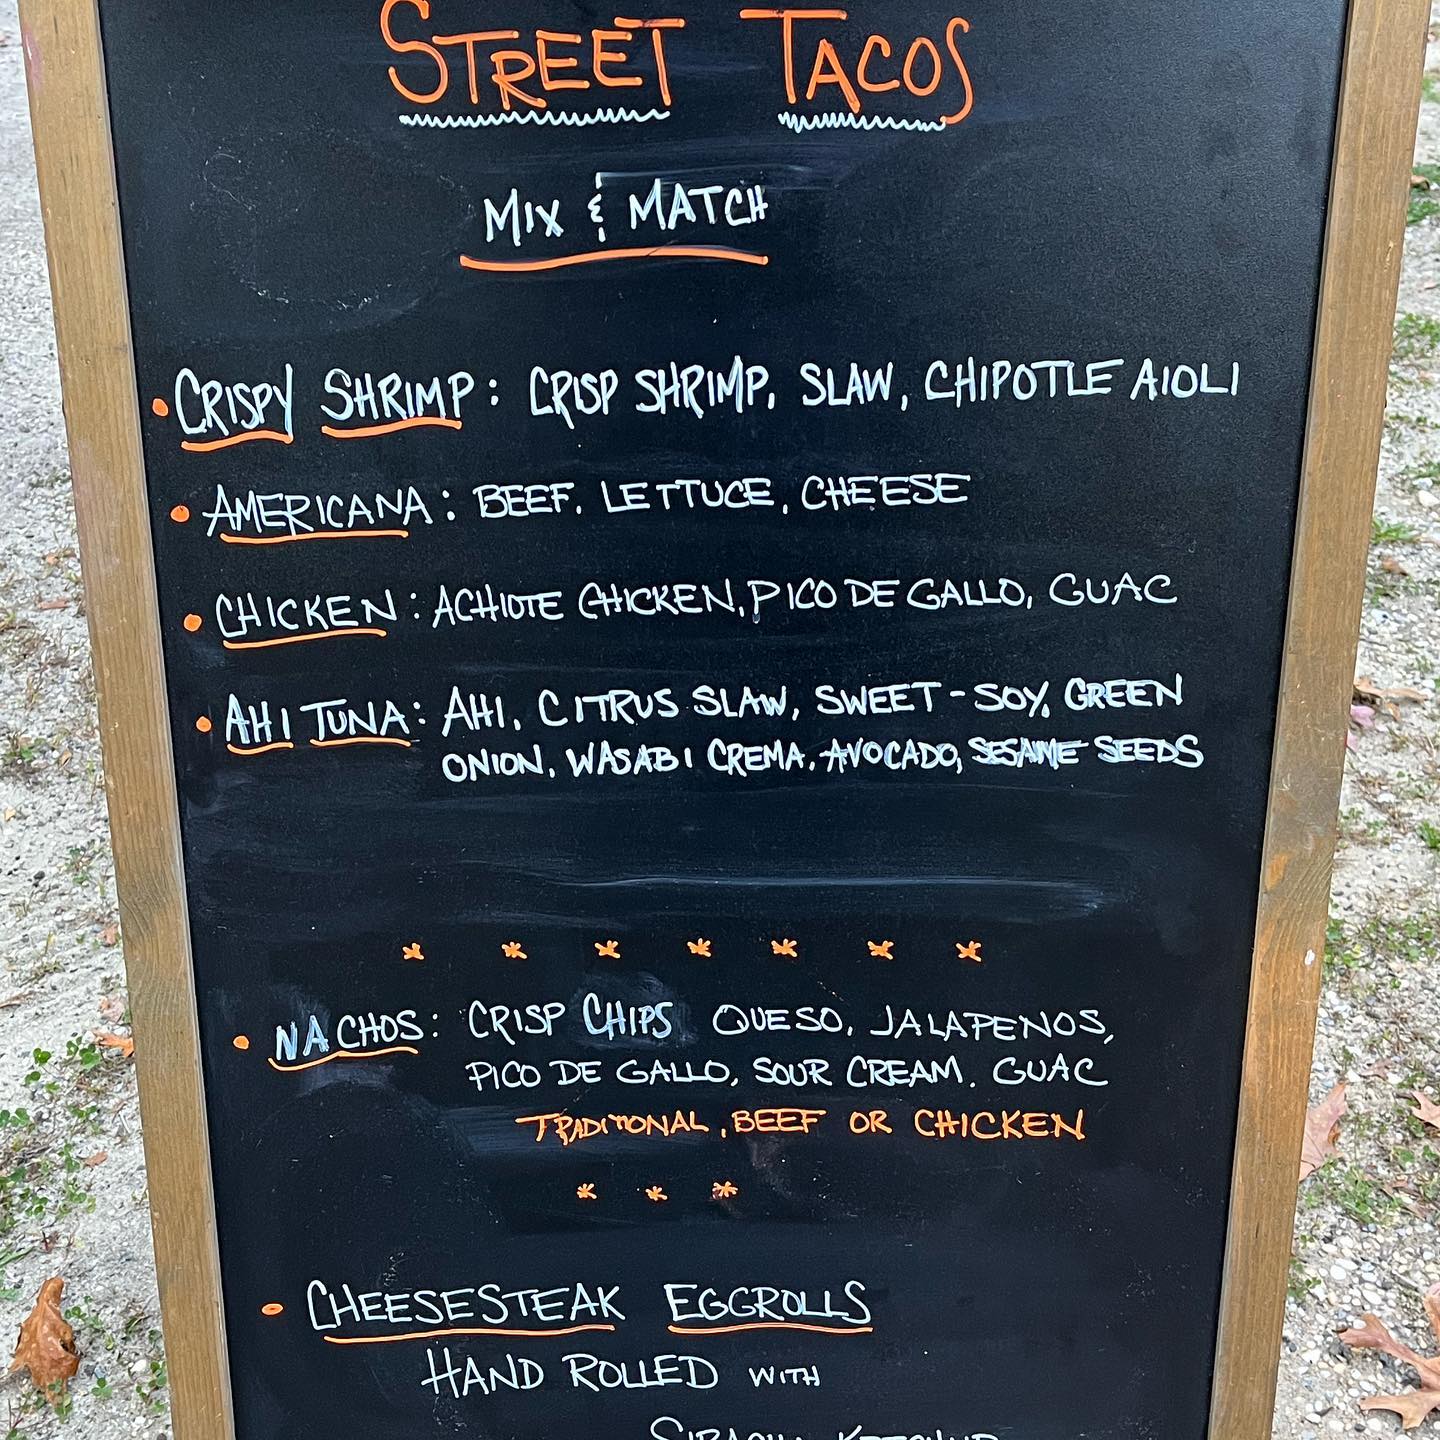 STREET TACOS
MIX & MATCH
• CRISPY SHRIMP: CRISP SHRIMP, SLAW, CHIPOTLE AIOLI
• AMERICANA: BEEF, LETTUCE, CHEESE
• CHICKEN: ACHIOTE CHICKEN, PICO DE GALLO, GUAC
• AHI TUNA: AHI, CITRUS SLAW, SWEET-SOY, GREEN
ONION, WASABI CREMA, AVOCADO, SESAME SEEDS
* * * * * * *
• NACHOS: CRISP CHIPS QUESO, JALAPENOS,
PICO DE GALLO, SOUR CREAM, GUAC
TRADITIONAL, BEEF OR CHICKEN
* * *
• CHEESESTEAK EGGROLLS
HAND ROLLED WITH